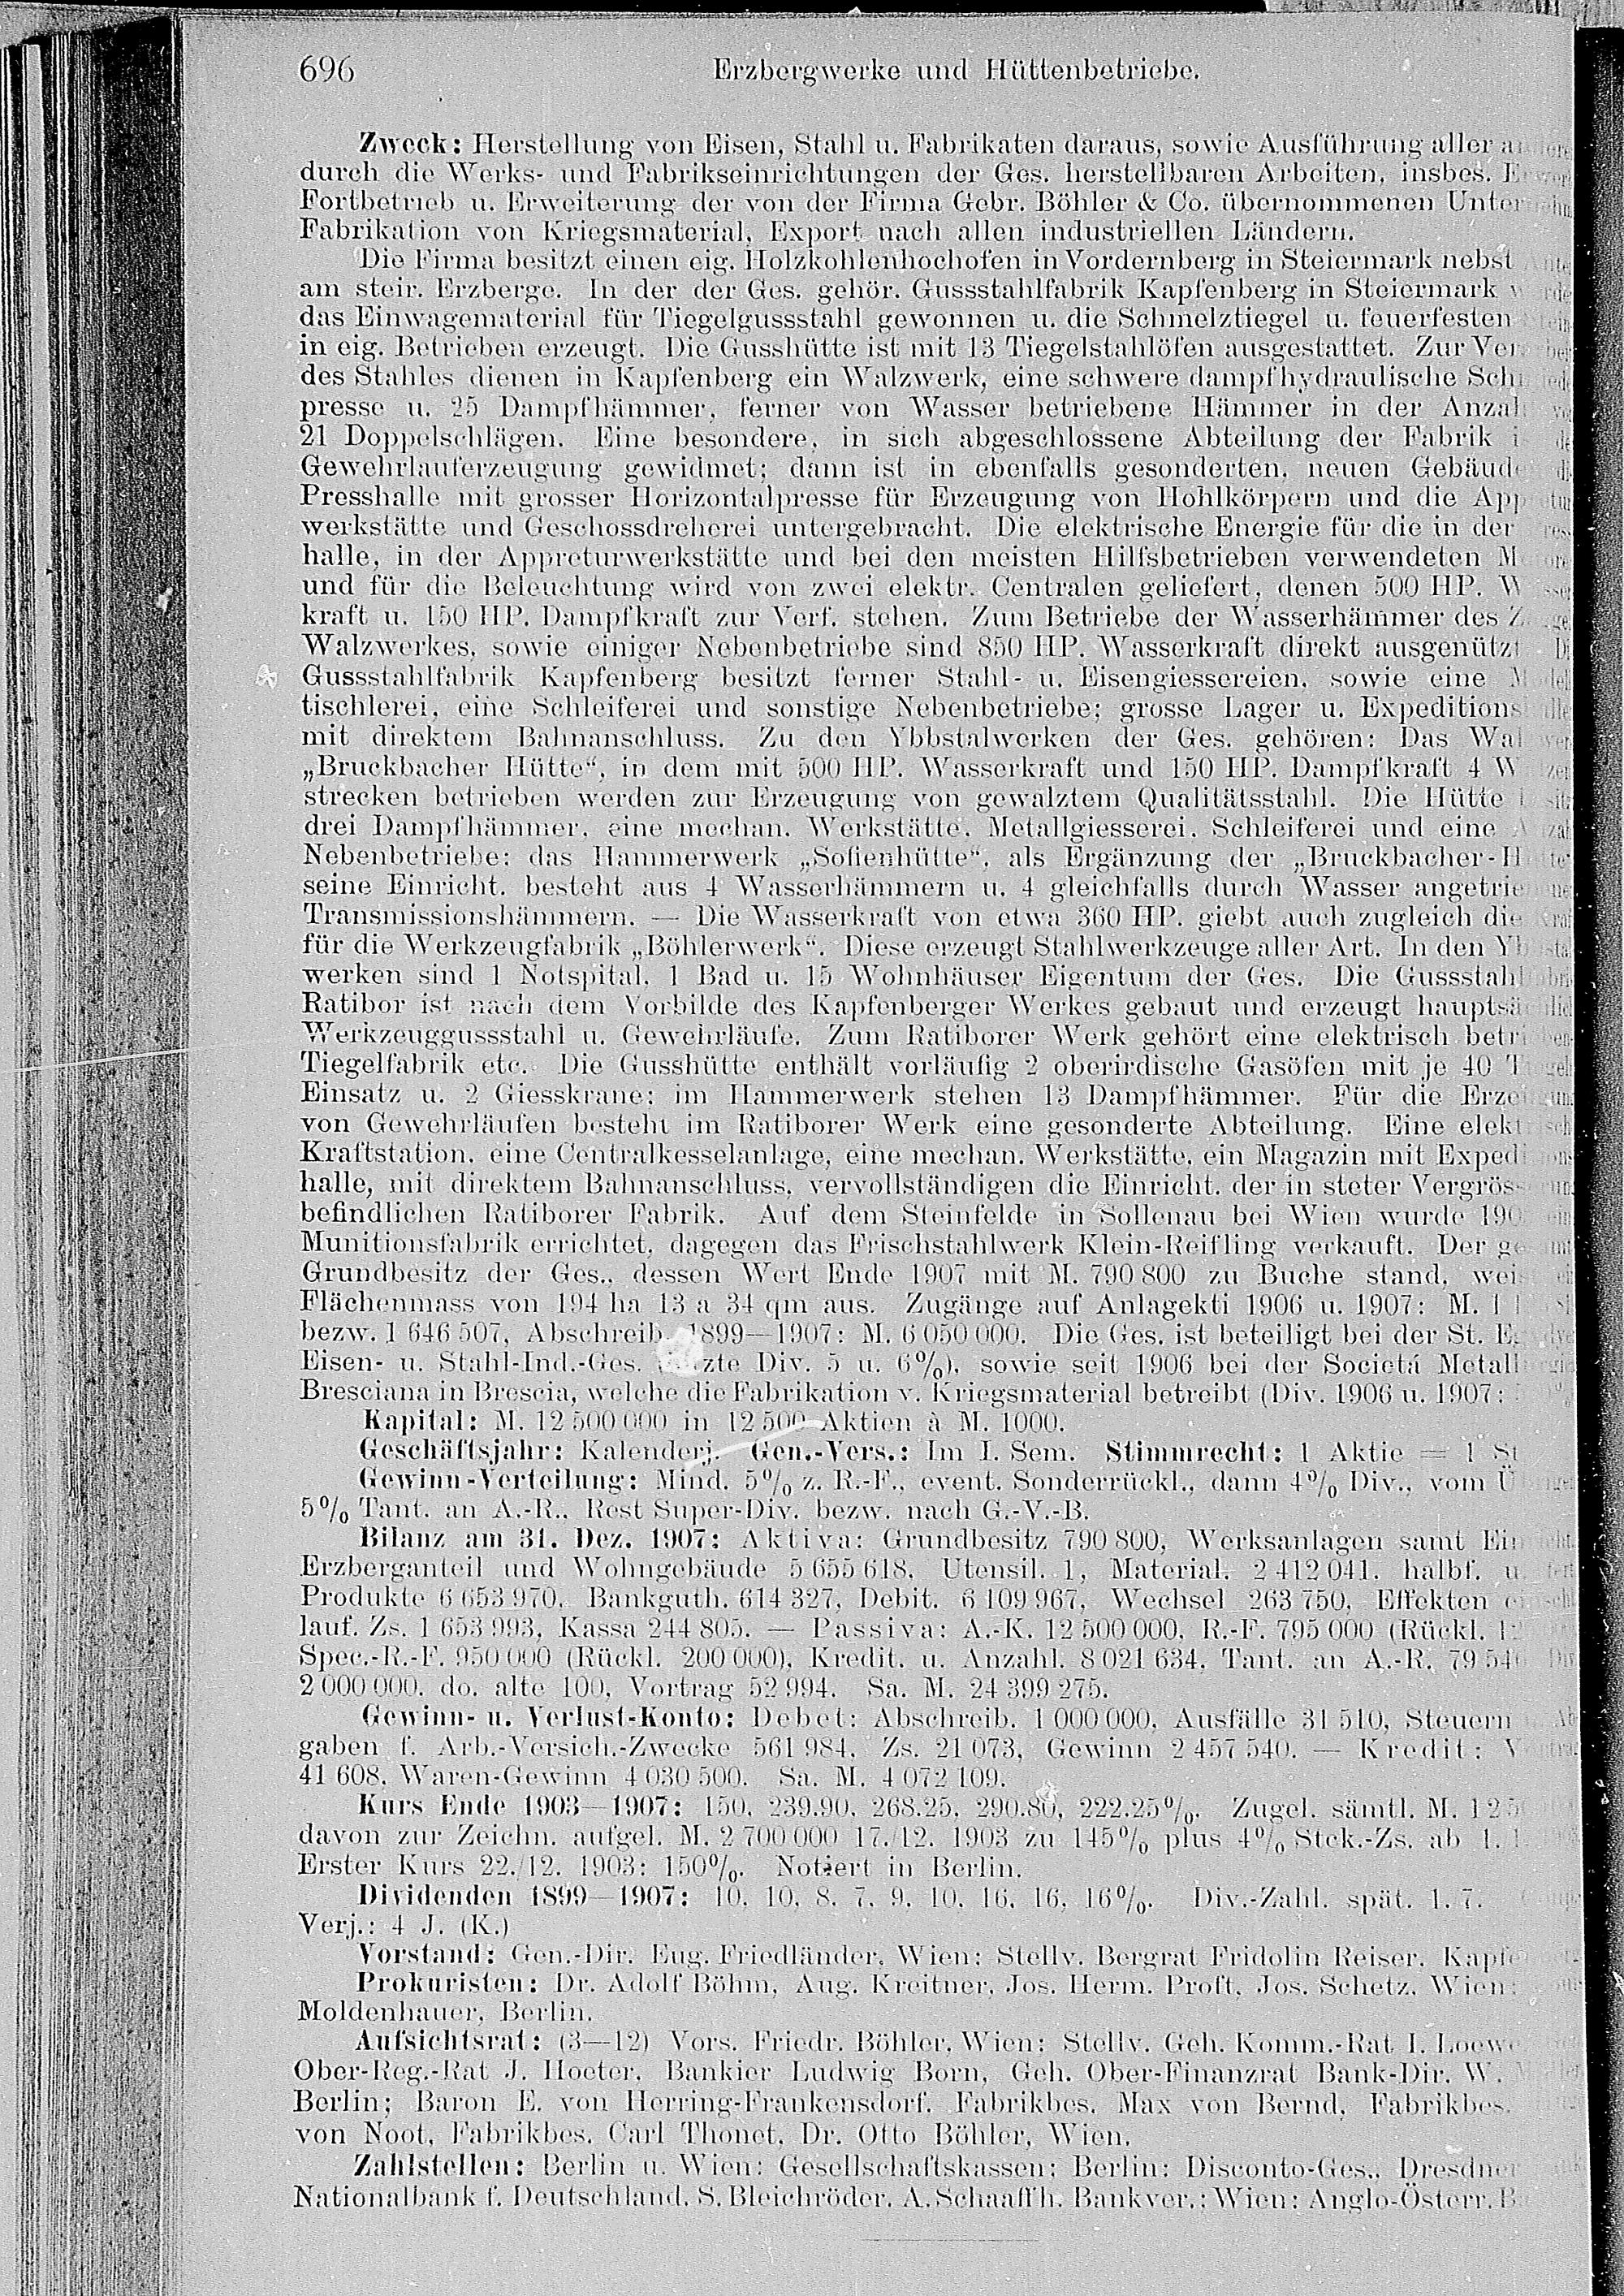 696 Erzbergwerke und Hüttenbetriebe.
Zweck: Herstellung von Eisen, Stahl u. Fabrikaten daraus, sowie Ausführung aller
durch die Werks- und Fabrikseinrichtungen der Ges. herstellbaren Arbeiten, insbes.
Fortbetrieb u. Erweiterung der von der Firma Gebr. Böhler & Co. übernommenen
Fabrikation von Kriegsmaterial, Export nach allen industriellen Ländern.
Die Firma besitzt einen eig. Holzkohlenhochofen in Vordernberg in Steiermark nebst
am steir. Erzberge. In der der Ges. gehör. Gussstahlfabrik Kapfenberg in Steiermark
das Einwagematerial für Tiegelgussstahl gewonnen u. die Schmelztiegel u. feuerfesten
in eig. Betrieben erzeugt. Die Gusshütte ist mit 13 Tiegelstahlöfen ausgestattet. Zur
des Stahles dienen in Kapfenberg ein Walzwerk, eine schwere dampfhydraulische
presse u. 25 Dampfhämmer, ferner von Wasser betriebene Hämmer in der
21 Doppelschlägen. Eine besondere, in sich abgeschlossene Abteilung der Fabrik
Gewehrlauferzeugung gewidmet; dann ist in ebenfalls gesonderten, neuen
Presshalle mit grosser Horizontalpresse für Erzeugung von Hohlkörpern und die
werkstätte und Geschossdreherei untergebracht. Die elektrische Energie für die in der
halle, in der Appreturwerkstätte und bei den meisten Hilfsbetrieben verwendeten
und für die Beleuchtung wird von zwei elektr. Centralen geliefert, denen 500 HP.
kraft u. 150 HP. Dampfkraft zur Verf. stehen. Zum Betriebe der Wasserhämmer des
Walzwerkes, sowie einiger Nebenbetriebe sind 850 HP. Wasserkraft direkt ausgenützt
Gussstahlfabrik Kapfenberg besitzt ferner Stahl- u. Eisengiessereien, sowie eine
tischlerei, eine Schleiferei und sonstige Nebenbetriebe; grosse Lager u.
mit direktem Bahnanschluss. Zu den Ybbstalwerken der Ges. gehören: Das
„Bruckbacher Hütte“, in dem mit 500 HP. Wasserkraft und 150 HP. Dampfkraft 4
strecken betrieben werden zur Erzeugung von gewalztem Qualitätsstahl. Die Hütte
drei Dampfhämmer, eine mechan. Werkstätte, Metallgiesserei, Schleiferei und eine
Nebenbetriebe; das Hammerwerk „Sofienhütte“, als Ergänzung der
seine Einricht. besteht aus 4 Wasserhämmern u. 4 gleichfalls durch Wasser
Transmissionshämmern. — Die Wasserkraft von etwa 360 HP. giebt auch zugleich die
für die Werkzeugfabrik „Böhlerwerk“. Diese erzeugt Stahlwerkzeuge aller Art. In den
werken sind 1 Notspital, 1 Bad u. 15 Wohnhäuser Eigentum der Ges. Die
Ratibor ist nach dem Vorbilde des Kapfenberger Werkes gebaut und erzeugt
Werkzeuggussstahl u. Gewehrläufe. Zum Ratiborer Werk gehört eine elektrisch
Tiegelfabrik etc. Die Gusshütte enthält vorläufig 2 oberirdische Gasöfen mit je 40
Einsatz u. 2 Giesskrane; im Hammerwerk stehen 13 Dampfhämmer. Für die
von Gewehrläufen besteht im Ratiborer Werk eine gesonderte Abteilung. Eine
Kraftstation, eine Centralkesselanlage, eine mechan. Werkstätte, ein Magazin mit
halle, mit direktem Bahnanschluss, vervollständigen die Einricht. der in steter
befindlichen Ratiborer Fabrik. Auf dem Steinfelde in Sollenau bei Wien wurde
Munitionsfabrik errichtet, dagegen das Frischstahlwerk Klein-Reifling verkauft. Der
Grundbesitz der Ges., dessen Wert Ende 1907 mit M. 790 800 zu Buche stand,
Flächenmass von 194 ha 13 a 34 qm aus. Zugänge auf Anlagekti 1906 u. 1907: M.
bezw. 1 646 507, Abschreib. 1899—1907: M. 6 050 000. Die Ges. ist beteiligt bei der St.
Eisen- u. Stahl-Ind.-Ges. Div. 5 u. 6%), sowie seit 1906 bei der Societá
Bresciana in Brescia, welche die Fabrikation v. Kriegsmaterial betreibt (Div. 1906 u. 1907:
Kapital: M. 12 500 000 in 12 500 Aktien à M. 1000.
Geschäftsjahr: Kalenderj. Gen.-Vers.: Im I. Sem. Stimmrecht: 1 Aktie = 1
Gewinn-Verteilung: Mind. 5% z. R.-F., event. Sonderrückl., dann 4% Div., vom
5% Tant. an A.-R., Rest Super-Div. bezw. nach G.-V.-B.
Bilanz am 31. Dez. 1907: Aktiva: Grundbesitz 790 800, Werksanlagen samt
Erzberganteil und Wohngebäude 5 655 618, Utensil. 1, Material. 2 412 041, halbf. u.
Produkte 6 653 970, Bankguth. 614 327, Debit. 6 109 967, Wechsel 263 750, Effekten
lauf. Zs. 1 653 993, Kassa 244 805. — Passiva: A.-K. 12 500 000, R.-F. 795 000 (Rückl.
Spec.-R.-F. 950 000 (Rückl. 200 000), Kredit. u. Anzahl. 8 021 634, Tant. an A.-R. 79 546
2 000 000, do. alte 100, Vortrag 52 994. Sa. M. 24 399 275.
Gewinn- u. Verlust-Konto: Debet: Abschreib. 1 000 000, Ausfälle 31 510, Steuern
gaben f. Arb.-Versich.-Zwecke 561 984, Zs. 21 073, Gewinn 2 457 540. — Kredit:
41 608, Waren-Gewinn 4 030 500. Sa. M. 4 072 109.
Kurs Ende 1903—1907: 150, 239.90, 268.25, 290.80, 222.25%. Zugel. sämtl. M.
davon zur Zeichn. aufgel. M. 2 700 000 17./12. 1903 zu 145% plus 4% Stck.-Zs. ab
Erster Kurs 22./12. 1903: 150%. Notiert in Berlin.
Dividenden 1899—1907: 10, 10, 8, 7, 9, 10, 16, 16, 16%. Div.-Zahl. spät. 1. 7.
Verj.: 4 J. (K.)
Vorstand: Gen.-Dir. Eug. Friedländer, Wien; Stellv. Bergrat Fridolin Reiser,
Prokuristen: Dr. Adolf Böhm, Aug. Kreitner, Jos. Herm. Proft, Jos. Schetz, Wien;
Moldenhauer, Berlin.
Aufsichtsrat: (3—12) Vors. Friedr. Böhler, Wien; Stellv. Geh. Komm.-Rat I. Loewe
Ober-Reg.-Rat J. Hoeter, Bankier Ludwig Born, Geh. Ober-Finanzrat Bank-Dir. W.
Berlin; Baron E. von Herring-Frankensdorf, Fabrikbes. Max von Bernd, Fabrikbes.
von Noot, Fabrikbes. Carl Thonet, Dr. Otto Böhler, Wien.
Zahlstellen: Berlin u. Wien: Gesellschaftskassen; Berlin: Disconto-Ges., Dresdner
Nationalbank f. Deutschland, S. Bleichröder, A. Schaaffh. Bankver.; Wien: Anglo-Österr.